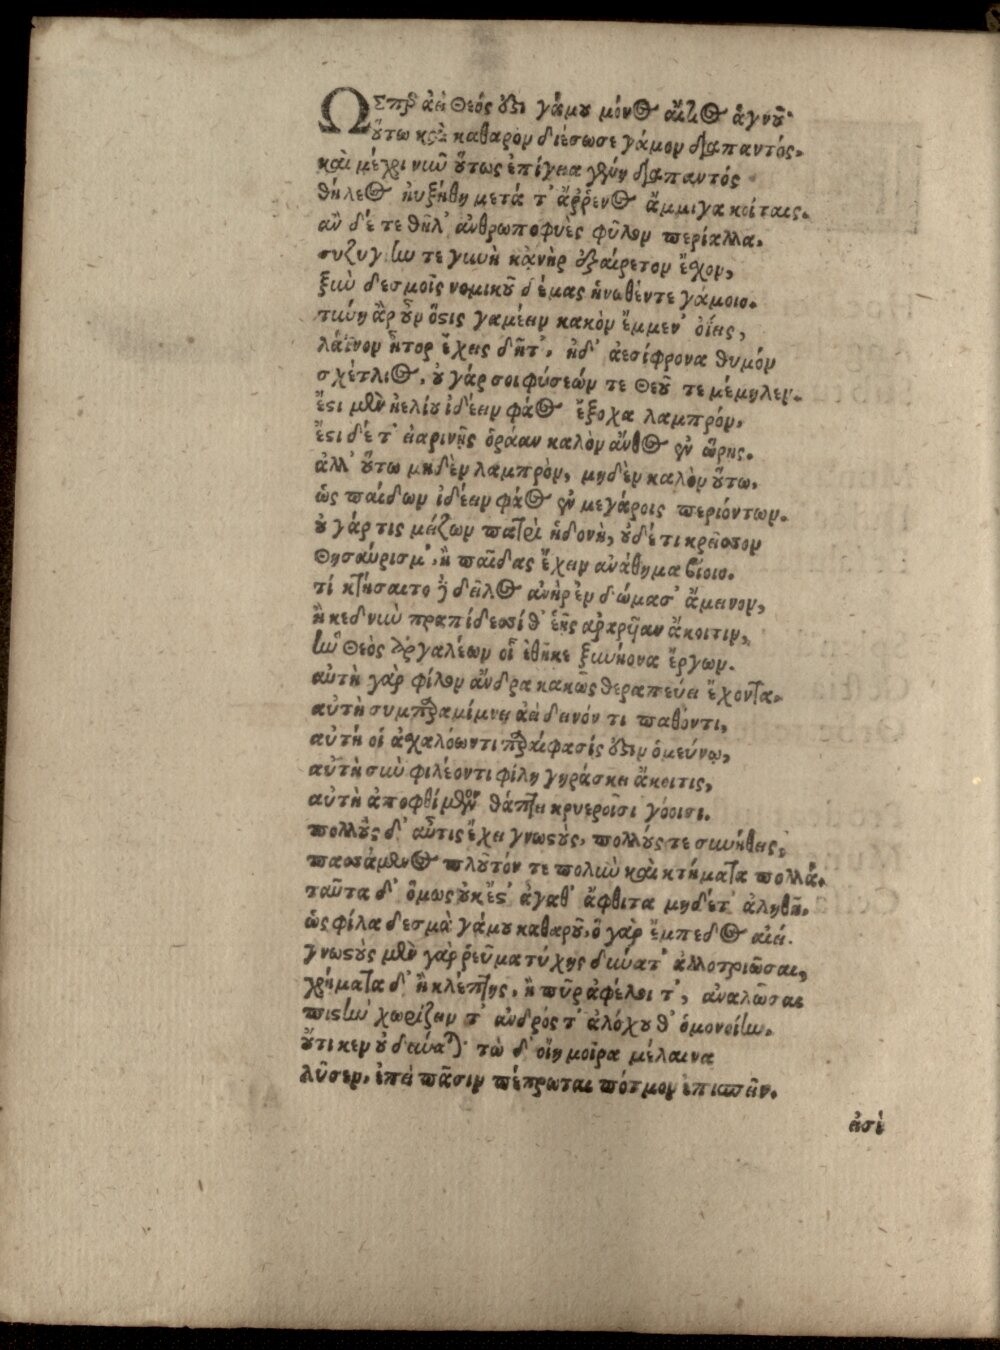 Ὥσπερ ἀεὶ Θεός ἐστι γάμου μόνος αἴτιος ἁγνοῦ·
οὕτω καὶ καθαρὸν διέσωσε γάμον διαπαντός.
καὶ μέχρι νῦν οὕτως ἐπίγεια γένη διαπαντός
θήλεος ηὐξήθη μετά τ' ἄῤῥενος ἄμμιγα κοίταις.
ἂν δέ τε θῆλ' ἀνθρωποφυὲς φῦλον περίαλλα.
συζυγίην τε γυνὴ κἀνὴρ ἐξαίρετον ἔχον,
ξὺν δεσμοῖς νομικοῦ δέμας ἡνωθέντε γάμοιο.
τύνη ἂρ οὖν ὅστις γαμέειν κακὸν ἔμμεν' ὀΐεις,
λάϊνον ἦτορ ἔχεις δῆτ', ἠδ' ἀεσίφρονα θυμόν
σχέτλιος, οὐ γάρ σοι φύσεών τε Θεοῦ τε μέμηλεν.
ἔστι μὲν ἠελίου ἰδέειν φάος ἔξοχα λαμπρόν,
ἔστι δέ τ' εἰαρινῆς ὁράαν καλὸν ἄνθος ἐν ὥρης.
ἀλλ' οὕτω μηδὲν λαμπρὸν, μηδὲν καλὸν οὕτω,
ὡς παίδων ἰδέειν φάος ἐν μεγάροις περιόντων.
οὐ γάρ τις μείζων πατρὶ ἡδονὴ, οὐδέ τι κρεῖσσον
Θησαύρισμ', ἢ παῖδας ἔχειν ἀνάθημα βίοιο.
τί κτήσαιτο δειλος ἀνὴρ ἐν δώμασ' ἄμεινον,
ἢ κεδνὴν πραπίδεσσί θ' ἑῆς ἀραρῆαν ἄκοιτιν,
ἣν Θεὸς ἀργαλέων οἷ ἔθηκε ξυνήονα ἔργων.
αὐτὴ γὰρ φίλον ἄνδρα κακῶς θεραπεύει ἔχοντα.
αὐτὴ συμπαραμίμνει ἀεὶ δεινόν τι παθόντι,
αὐτή οἱ ἀχαλόωντι παραίφασίς ἐστιν ὁμεύνῳ,
αὐτὴ σὺν φιλέοντι φίλη γηράσκει ἄκοιτις,
αὐτὴ ἀποφθίμενον θάπτει κρυεροῖσι γόοισι.
πολλοὺς δ' αὖτις ἔχει γνωστοὺς, πολλούς τε συνήθεις,
πασσάμενος πλοῦτόν τε πολὺν καὶ κτήματα πολλά.
ταῦτα δ' ὅμως οὐκ ἔστ' ἀγαθ' ἄφθιτα μηδέ τ' ἀληθῆ.
ὡς φίλα δεσμὰ γάμου καθαροῦ, ὃ γὰρ ἔμπεδος αἰεί.
γνωστοὺς μὲν γὰρ ῥεῦμα τύχης δύνατ' ἀλλοτριῶσαι,
χρήματα δ' ἢ κλέπτης, ἢ πῦρ ἀφέλοι τ', ἀναλῶσαι
πιστὴν χωρίζειν τ' ἀνδρός τ' ἀλόχου θ' ὁμονοίην.
οὔτι κεν οὐ δύναται τὼ δ' οἴη μοῖρα μέλαινα
λῦσεν, ἐπεὶ πᾶσιν πέπρωται πότμον ἐπισπεῖν.
ἀσὶ